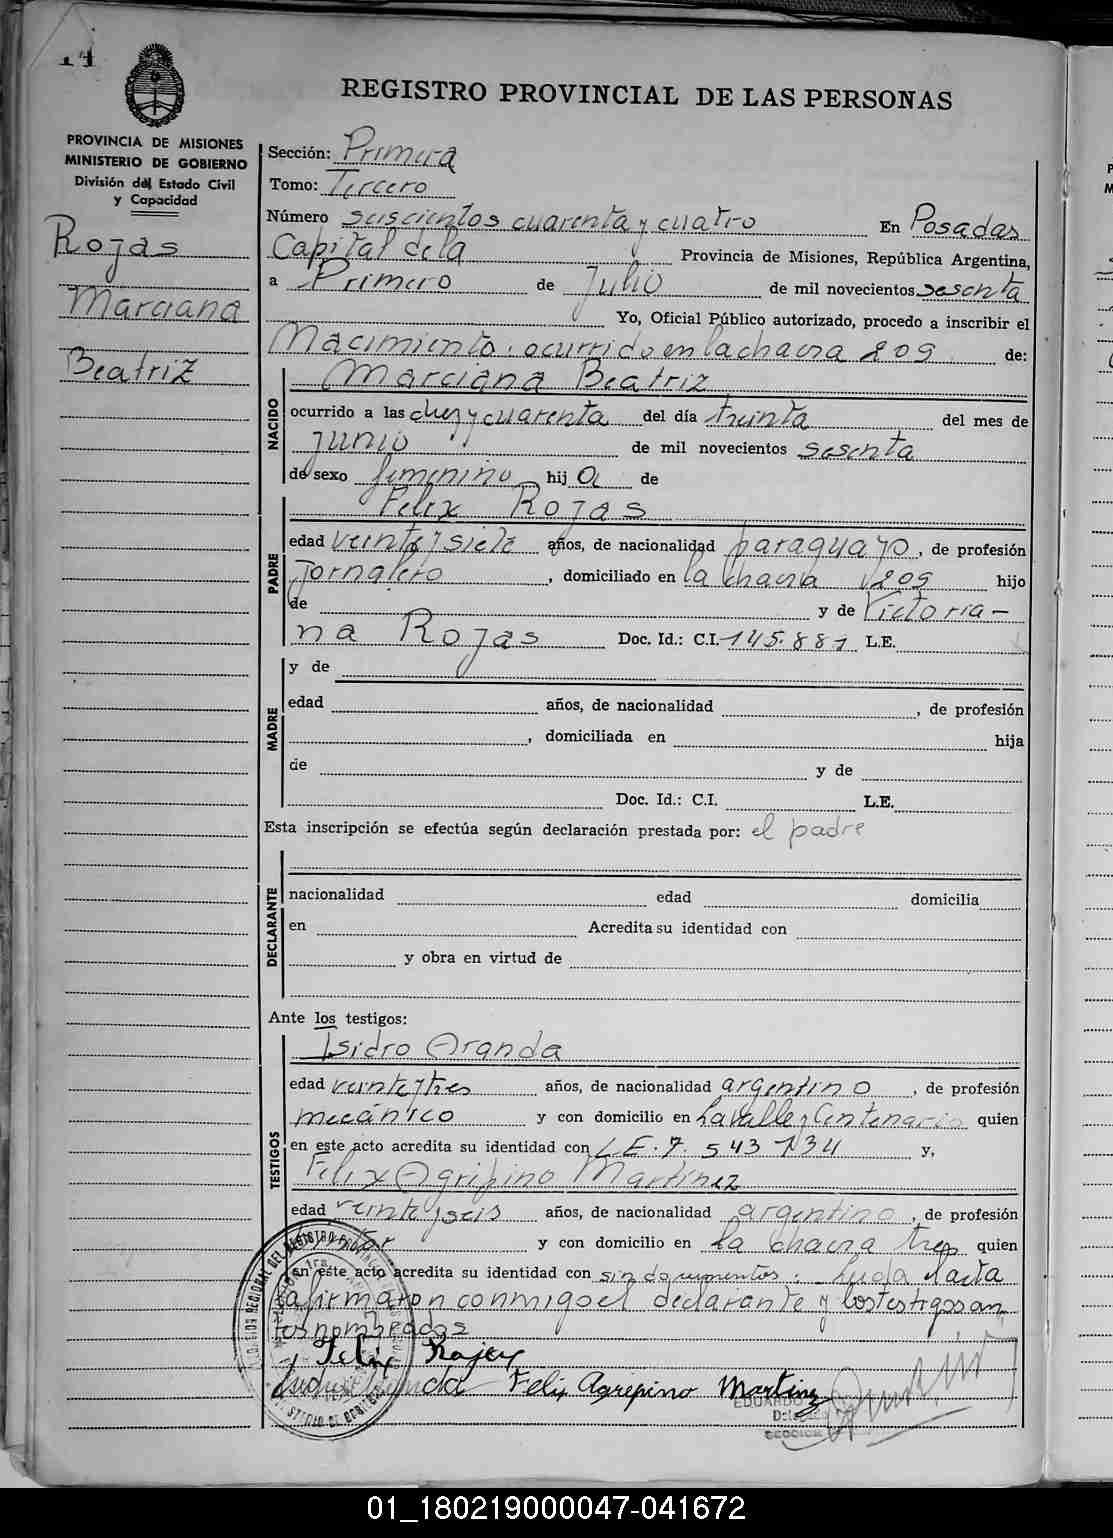 14
REGISTRO PROVINCIAL DE LAS PERSONAS
PROVINCIA DE MISIONES
MINISTERIO DE GOBIERNO
División del Estado Civil
y Capacidad
Rojas
Marciana
Beatriz
Sección: Primera
Tomo: Tercero
Número seiscientos cuarenta y cuatro En Posadas
Capital de la Provincia de Misiones, República Argentina,
a Primero de Julio de mil novecientos sesenta
Yo, Oficial Público autorizado, procedo a inscribir el
Nacimiento ocurrido en la chacra 209 de:
NACIDO
Marciana Beatriz
ocurrido a las diez y cuarenta del día treinta del mes de
junio de mil novecientos sesenta
de sexo femenino hij a de
PADRE
Felix Rojas
edad veinte y siete años, de nacionalidad paraguayo, de profesión
Jornalero, domiciliado en la chacra 209 hijo
de y de Victoria-
na Rojas Doc. Id.: C.I. 145.881 L.E.
MADRE
y de
edad años, de nacionalidad , de profesión
, domiciliada en hija
de y de
Doc. Id.: C.I. L.E.
Esta inscripción se efectúa según declaración prestada por: el padre
DECLARANTE
nacionalidad edad domicilia
en Acredita su identidad con
y obra en virtud de
Ante los testigos:
TESTIGOS
Isidro Aranda
edad veinte y tres años, de nacionalidad argentino, de profesión
mecánico y con domicilio en Lavalle y Centenario quien
en este acto acredita su identidad con L.E. 7.543734 y,
Felix Agripino Martinez
edad veinte y seis años, de nacionalidad argentino, de profesión
y con domicilio en la chacra tres quien
en este acto acredita su identidad con sin documentos. Leida el acta
la firmaron conmigo el declarante y los testigos an
tes nombrados
Felix Rojas
Felix Agrepino Martinz
EDUARDO
SECCION
01_180219000047-041672